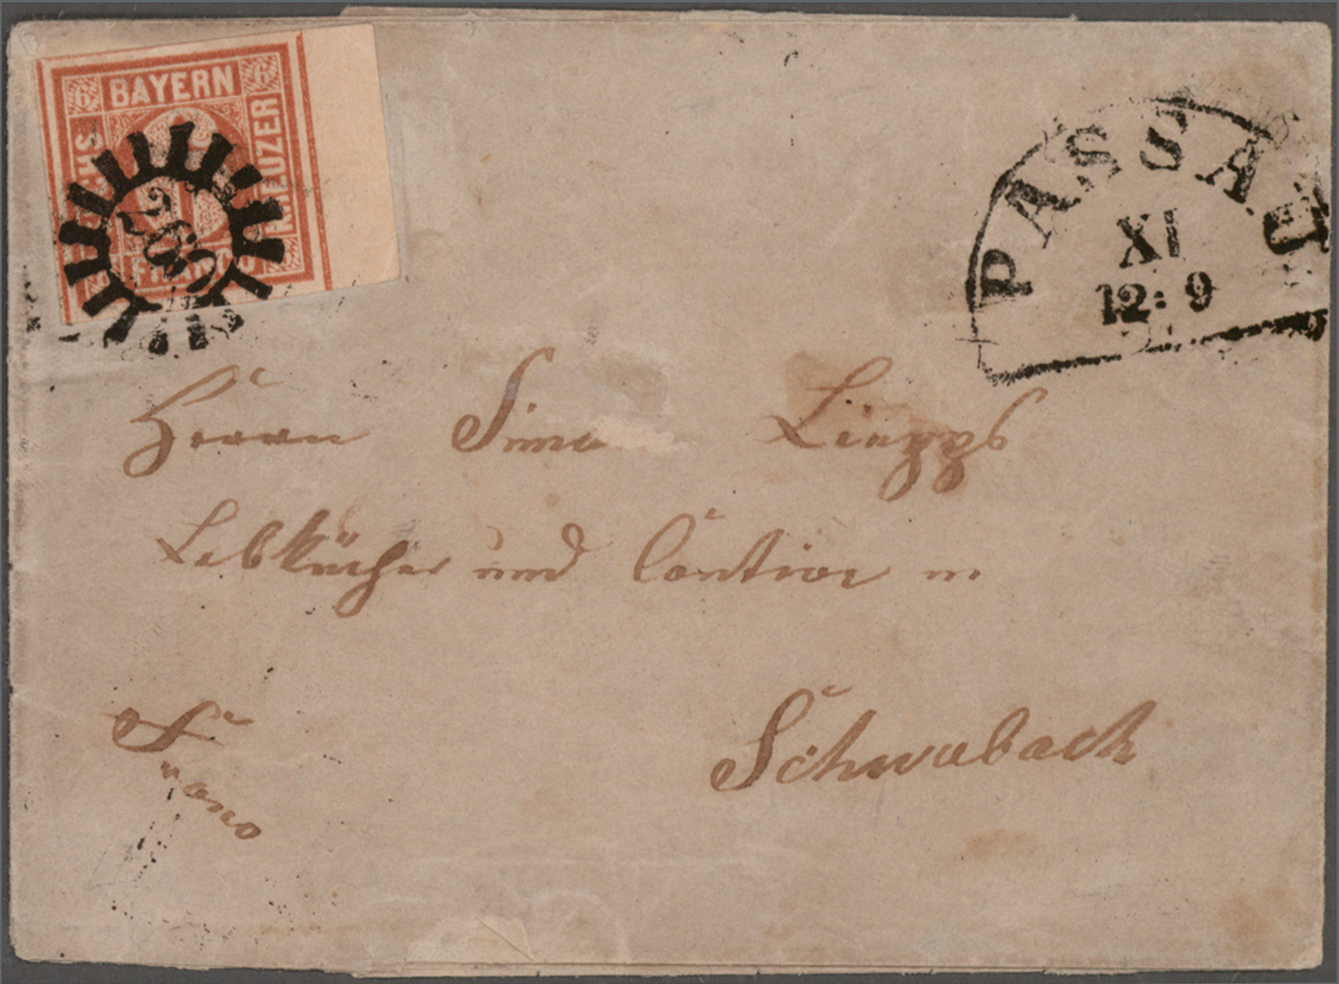 BAYERN
6 6
SECHS
KREUZER
FRANCO
269
PASSAU
XI
12: 9
Herrn Simo
Lebküchner und Conditor in
Schwabach
Franco